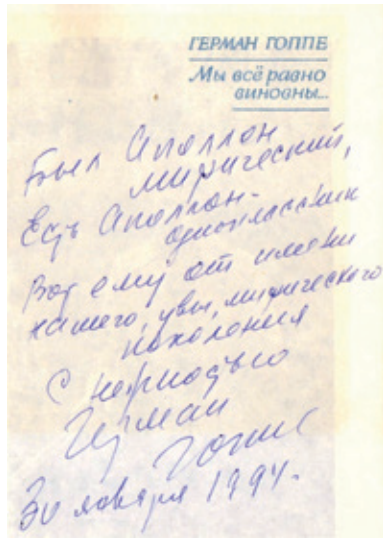 ГЕРМАН ГОППЕ
Мы всё равно
виновны...
Был Аполлон
мифический,
Есть Аполлон-
одноклассник
Вот ему от имени
нашего, увы, мифического
поколения
С нежностью
Герман
Гоппе
30 января 1994.